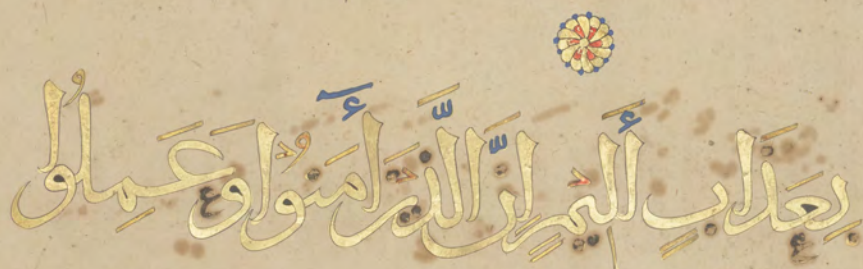 بِعَذَابٍ أَلِيمٍ إِنَّ الَّذِينَ آمَنُوا وَعَمِلُوا